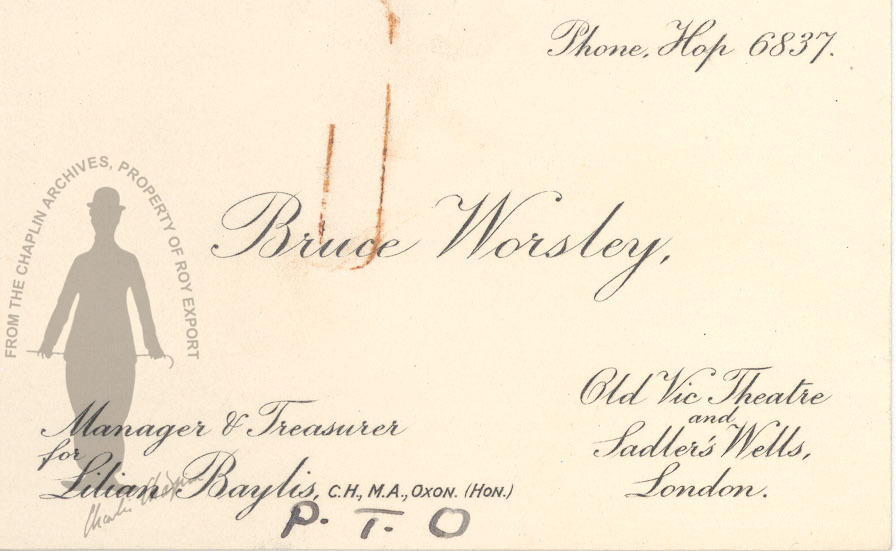 Phone, Hop 6837.
FROM THE CHAPLIN ARCHIVES, PROPERTY OF ROY EXPORT
Bruce Worsley,
Old Vic Theatre
and
Sadler's Wells,
London.
Manager & Treasurer
for
Lilian Baylis, C.H., M.A., OXON. (HON.)
Charlie Chaplin
P. T. O